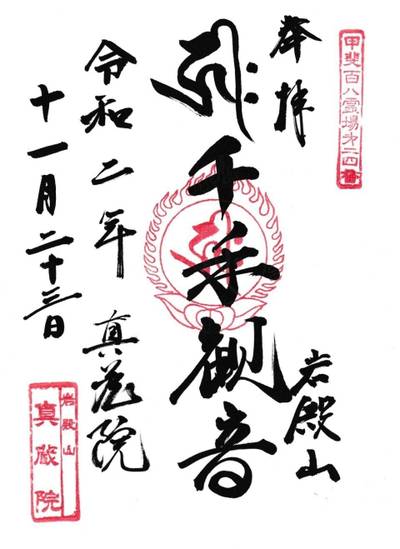 甲斐百八霊場第二四番
奉拝
岩殿山
千手観音
真蔵院
令和二年
十一月二十三日
岩殿山
真蔵院